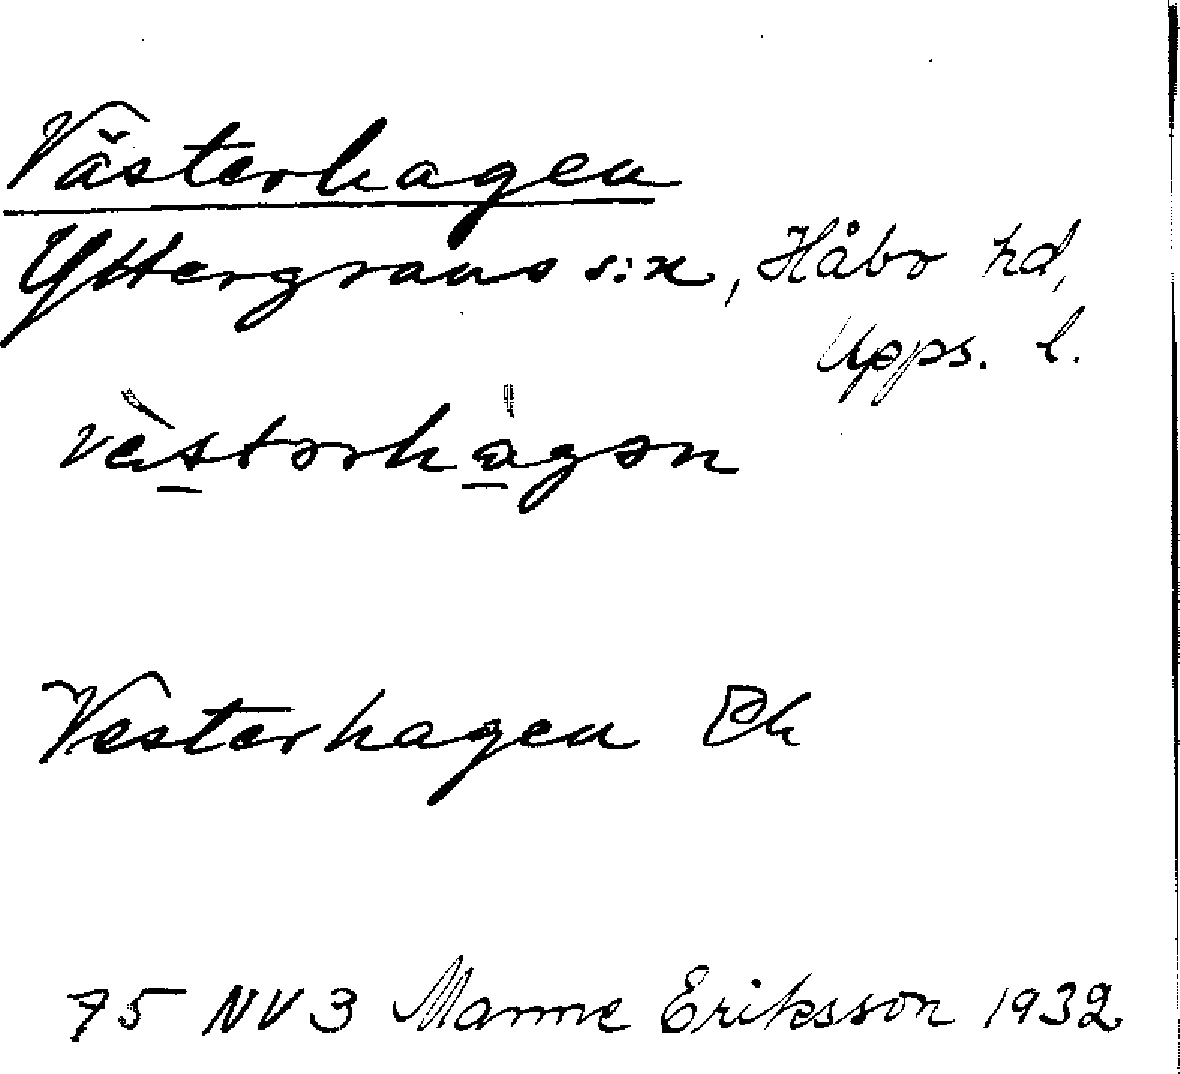 Västerhagen
Yttergrans s:n, Håbo hd,
Upps. l.
vèstərhàgən
Vesterhagen Ek
75 NV 3 Manne Eriksson 1932